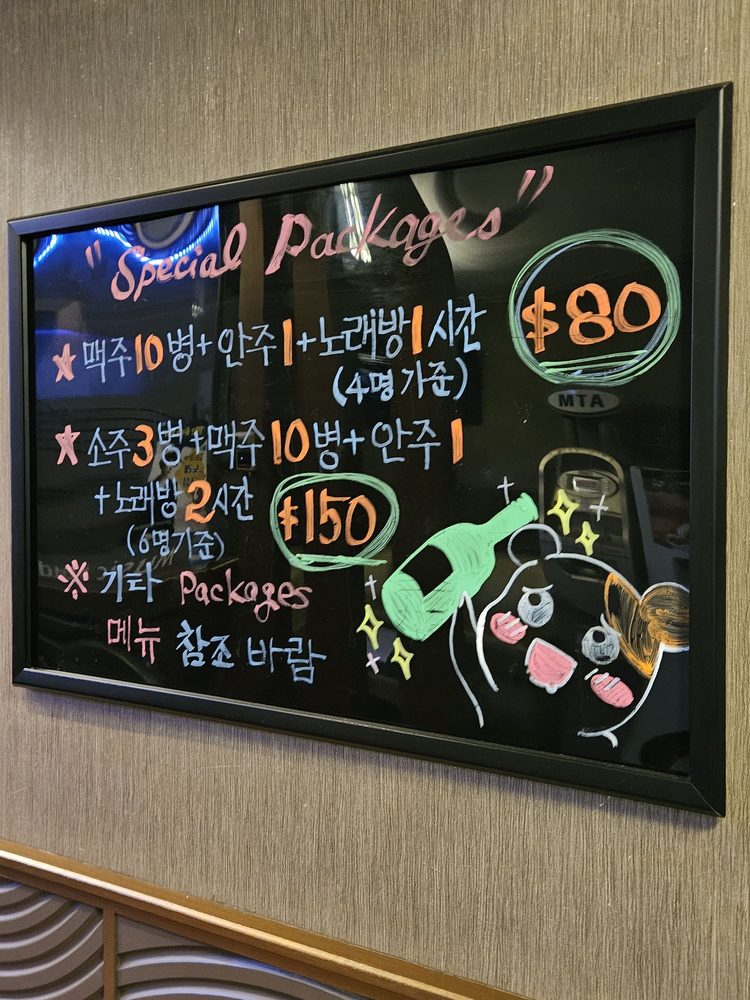 "Special Packages"
★ 맥주 10병 + 안주 1 + 노래방 1시간
$80
(4명 기준)
MTA
★ 소주 3병 + 맥주 10병 + 안주 1
+ 노래방 2시간
$150
(6명 기준)
※ 기타 Packages
메뉴 참조 바람